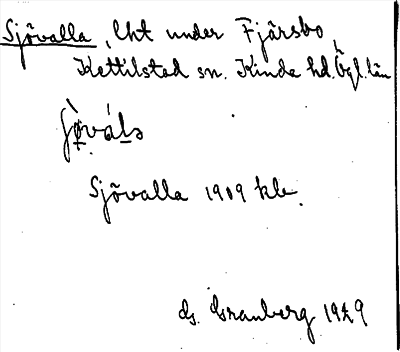 Sjövalla, lht under Fjärsbo
Kettilstad sn. Kinda hd. Ögl. län
Sjövalla 1909 kb.
G. Granberg 1929